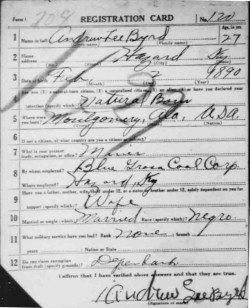 708 REGISTRATION CARD No. 120
1 Name in full Andrew Lee Byrd Age, in yrs. 27
2 Home address Hazard Ky
3 Date of birth Feb 2 1890
4
Natural Born
5 Where were you born? Montgomery, Ala, USA
6 If not a citizen, of what country are you a citizen or subject?
7 What is your present trade, occupation, or office? Miner
8 By whom employed? Blue Grass Coal Corp.
Where employed? Hazard, Ky
9 Have you a father, mother, wife, child under 12, or a sister or brother under 12, solely dependent on you for support
Wife
10 Married or single (which)? Married Race (specify which)? Negro
11 What military service have you had? Rank None branch
years Nation or State
12 Do you claim exemption from draft (specify grounds)? Dependants
I affirm that I have verified above answers and that they are true.
Andrew Lee Byrd